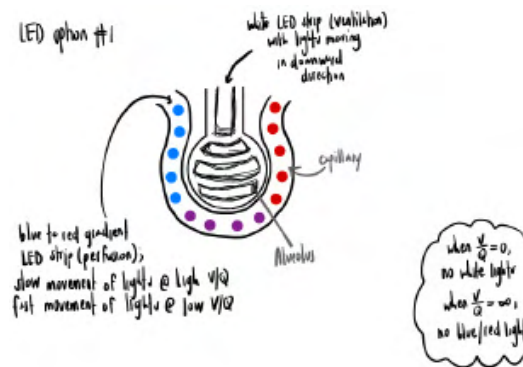 LED option #1
white LED strip (ventilation)
with lights moving
in downward
direction
capillary
Alveolus
blue to red gradient
LED strip (perfusion);
slow movement of lights @ high V/Q
fast movement of lights @ low V/Q
when V/Q = 0,
no white lights
when V/Q = ∞,
no blue/red light